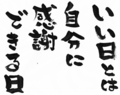 いい日とは
自分に
感謝
できる日